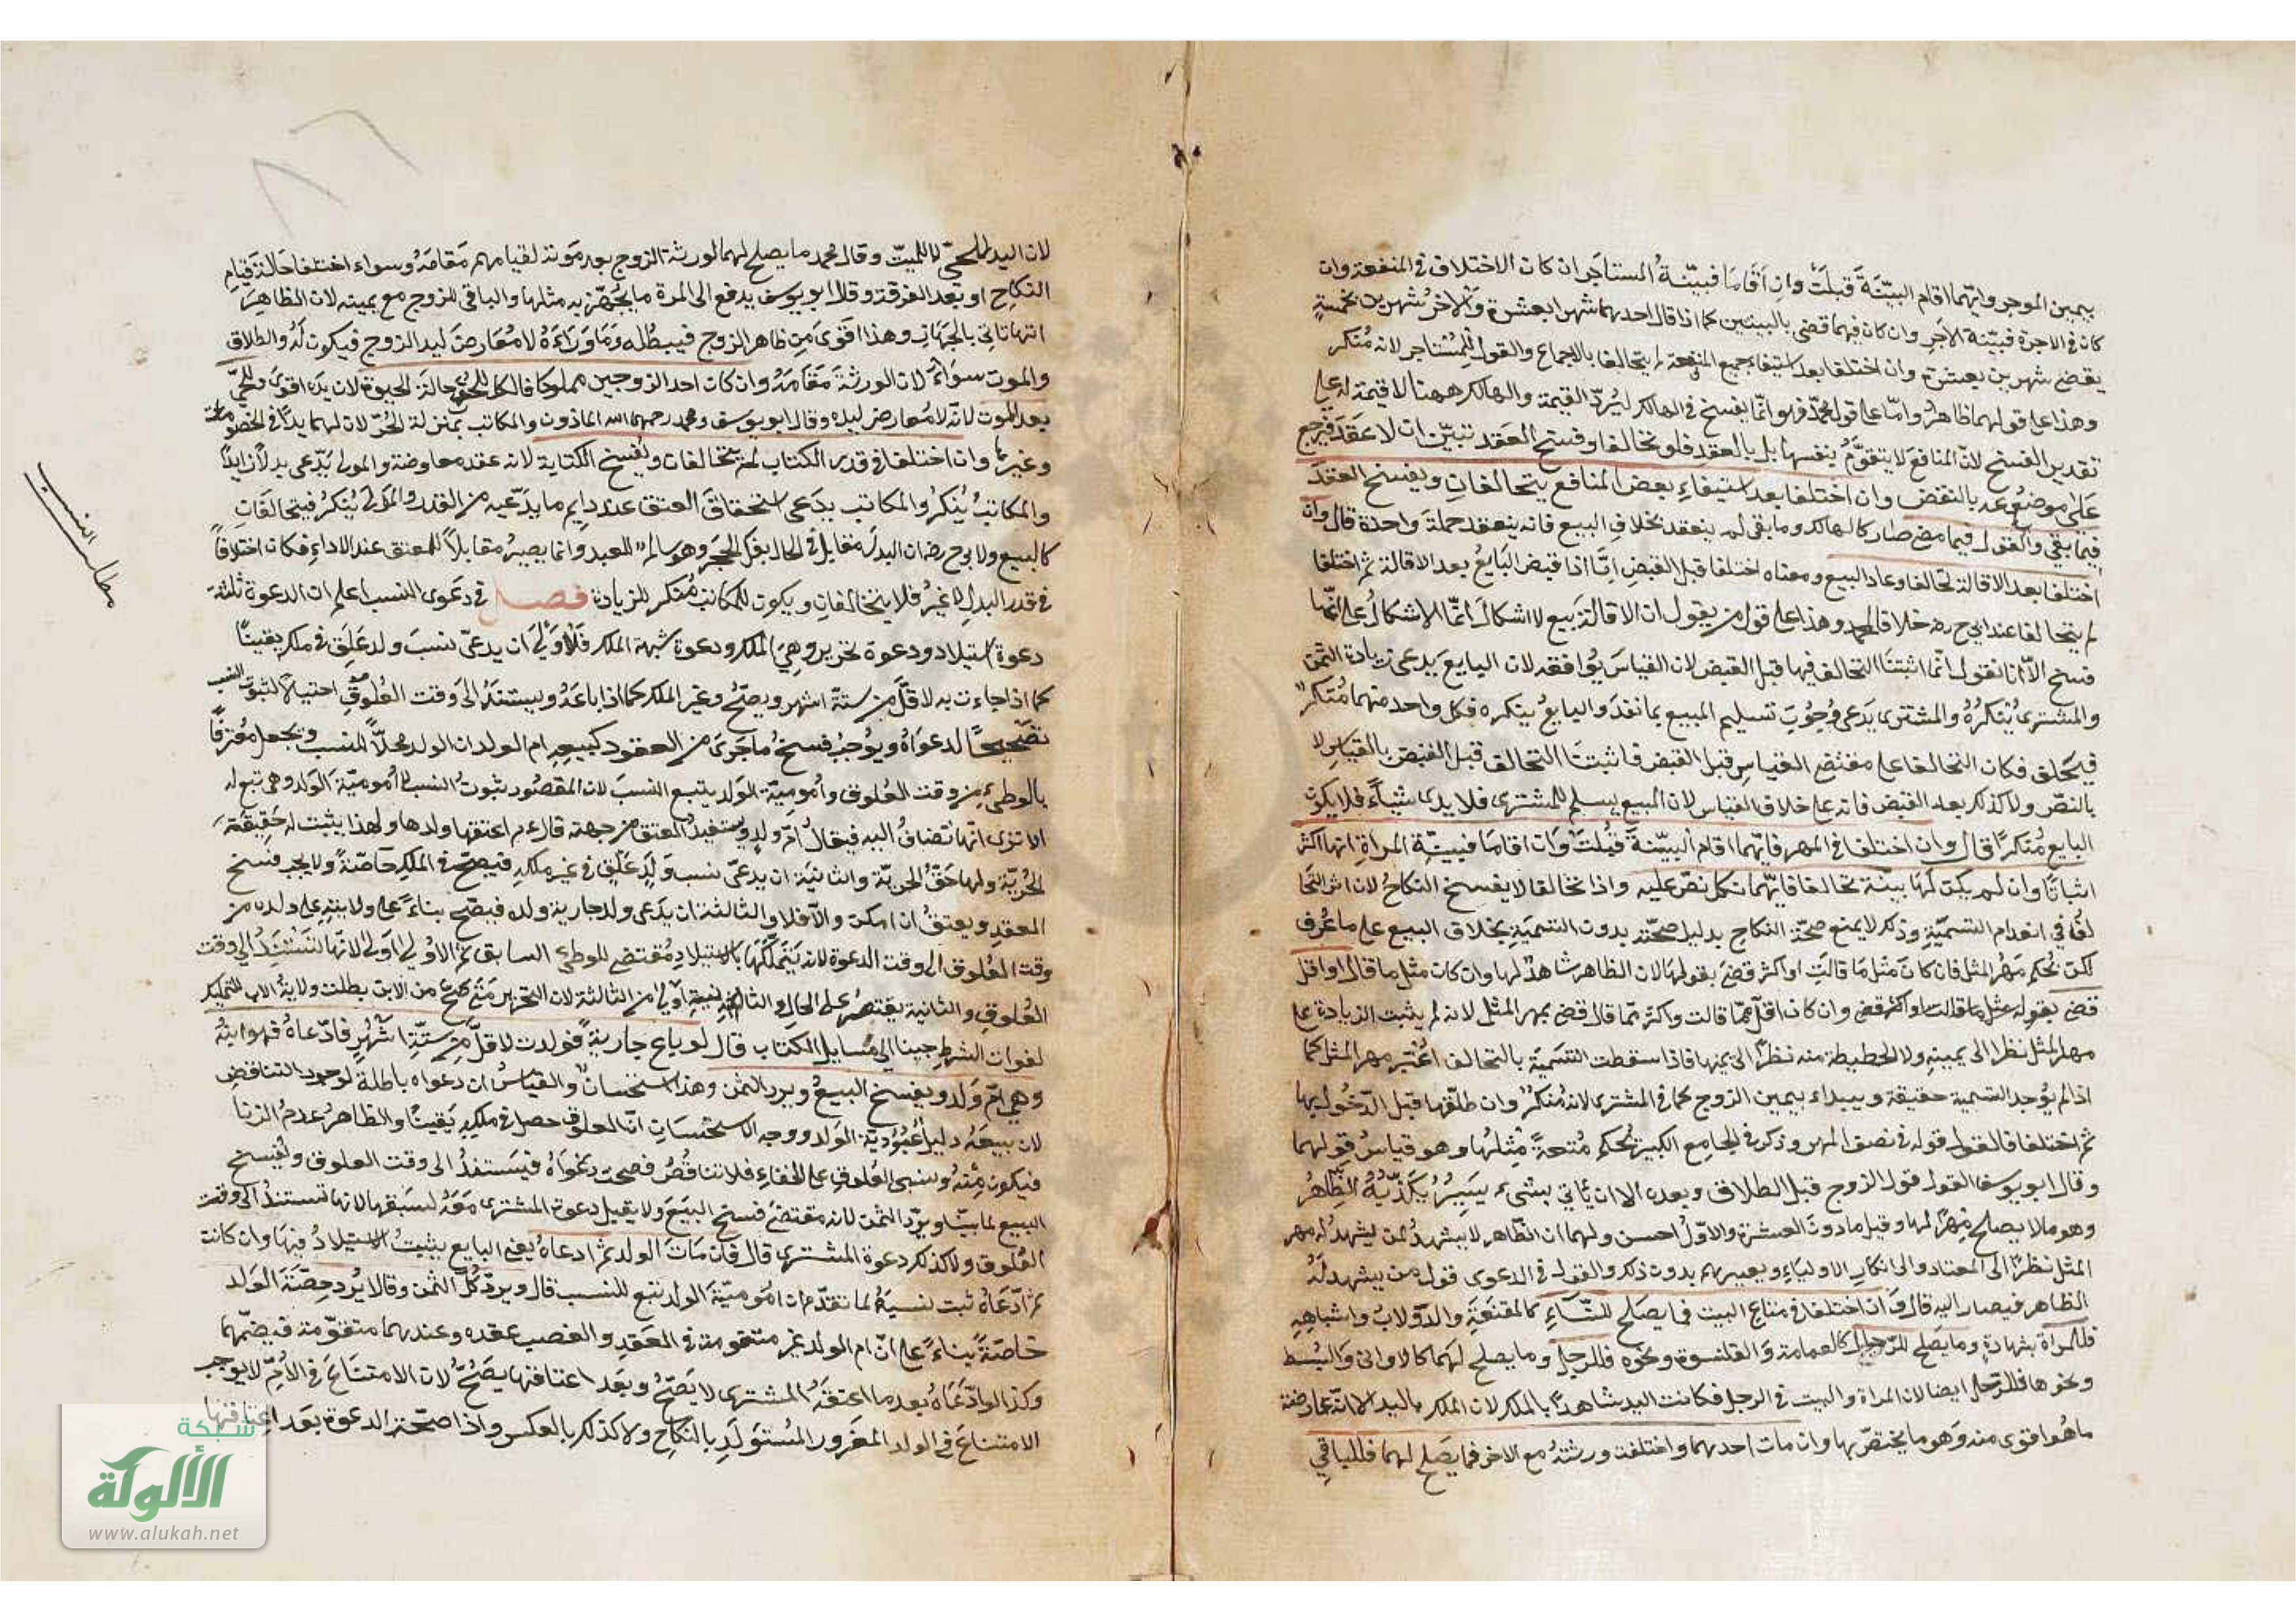 بيمين الموجر وايهما اقام البيّنَةَ قُبلَتْ وان اَقَامَا فبيّنةُ المستاجَر ان كان الاختلاف في المنفعة وان
كان في الاجرة فبيّنة الآجر وان كان فيهما قضى بالبينتين كما اذا قال احدهما شهر ابعشرة والآخر شهرين بخمسةٍ
يقضى شهرين بعشرة وان اختلفا بعد استيفاء جميع المنفعة لم يتحالفا بالاجماع والقول للمستاجر لانه مُنكر
وهذا على قولهما ظاهرٌ وامّا على قول محمّد فهو انما يفسخ في الهالك ليُردّ القيمة والهالك ههنا لا قيمة له على
تقدير الفسخ لانّ المنافع لا يتقوّمُ بنفسها بل بالعقد فلو تحالفا وفسخ العقد تبيّن ان لا عقد فيرجع
على موضوعه بالنقض وان اختلفا بعد استيفاءِ بعض المنافع يتحالفان ويفسخ العقد
فيما بقي والقول فيما مضى صار كالهالك وما بقى لم ينعقد بخلاف البيع فانه ينعقد جملة واحدة قال وان
اختلفا بعد الاقالة تحالفا وعاد البيع ومعناه اختلفا قبل القبض امّا اذا قبض البايعُ بعد الاقالة ثم اختلفا
لم يتحالفا عند ابى ح رضه خلافا لمحمد وهذا على قول من يقول ان الاقالة بيع لا اشكال انما الاشكالُ على انّها
فسخ الّا انا نقول انما اثبتنا التحالف فيها قبل القبض لان القياسَ يُوافقه لان البايعَ يدعى زيادة الثمن
والمشترى يُنْكِرُهُ والمشترى يَدعى وُجُوبَ تسليم المبيع بما نقدَ والبايعُ ينكره فكل واحد منهما مُنكرٌ
فيحلف فكان التحالفا على مقتضى القياس قبل القبض فاثبتنا التحالف قبل القبض بالقياس لا
بالنصّ ولا كذلك بعد القبض فانه على خلاف القياس لان المبيع يسلم للمشترى فلا يدعى شيئاً فلا يكون
البايع مُنكراً قال وان اختلفا في المهر فايّهما اقام البيّنة قُبلت وان اقاما فبيّنة المراة انها اكثر
اثباتًا وان لم يكن لهما بينّة تحالفا فايّهما نكل نصّ عليه واذا تحالفا لا يفسخ النكاحُ لان اثر التحا
لفِ في انعدام التسميّةِ وذلك لا يمنع صحّة النكاح بدليل صحّته بدون التسميةِ بخلاف البيع على ما عُرف
لكن يُحكم مَهْرُ المثل فان كان مثل ما قالتْ او اكثر قضى بقولها لان الظاهر شاهدٌ لها وان كان مثل ما قال او اقل
قضى بقوله وان كان اقل مما قالت واكثر ممّا قال قضى بمهر المثل لانه لم يثبت الزيادة على
مهر المثل نظرا الى يمينهِ ولا الحطيطة منه نظراً الى يمينها فاذا سقطت التسمية بالتحالف اعُتبر مهر المثل كما
اذا لم يُوجد التسمية حقيقة ويبداء بيمين الزوج كما في المشترى لانه مُنكرٌ وان طلّقها قبل الدّخول بها
ثم اختلفا فالقول قوله في نصف المهر وذكر في الجامع الكبير يُحكم مُتعةُ مِثلها وهو قياسُ قولهما
وقال ابو يوسف القول قول الزوج قبل الطلاق وبعده الا ان يأتي بشىءٍ يسير يُكَذّبهُ الظاهرُ
وهو ما لا يصلح مَهْرًا لها وقيل ما دون العشرة والاوّلُ احسن ولهما ان الظاهر لا يشهدُ لمن ليشهدُ له مهر
المثل نظرًا الى المعتاد والى انكار الاولياء وبعيرهم بدون ذلك والقول في الدعوى قول من يشهد لهُ
الظاهر فيصار اليه قال وان اختلفا في متاع البيت فما يصلح للنّسَاءِ كالمقنعَةِ والدّولابُ واشباههِ
فللمراة بشهادةٍ وما يصلح للرّجال كالعمامة والقلنسوة ونحوه فللرجل وما يصلح لهما كالاوانى والبُسط
ونحوها فللرّجل ايضا لان المراة والبيت في الرجل فكانت اليد شاهداً بالملك لان الملك باليد الا انّه عارضه
ما هُوَ اقوى منه وَهو ما يختصّ بها وان مات احدهما واختلفت ورثتهُ مع الآخر فما يصلح لهما فللباقي
لان اليد للحيّ لا للميتّ وقال محمد ما يصلح لهما لورثة الزوج بعد موته لقيامهم مَقامَهُ وسواء اختلفا حالة قيام
النكاح او بعد الفرقة وقال ابو يوسف يدفع الى المرة ما يُجهّز به مثلها والباقى للزوج مع يمينه لان الظاهر
انها تاتى بالجهازِ وهذا اقوى من ظاهر الزوج فيبطله وما وَرَاءَهُ لا مُعَارِضَ ليد الزوج فيكون لَهُ والطلاق
والموت سوَاءٌ لان الورثةَ مَقَامَهُ وان كان احد الزوجين مملوكا فالكل للحرّ حالة الحيوة لان يده اقوى وللحيّ
بعد الموت لانّه لا مُعارض ليده وقال ابو يوسف ومحمد رحمهما الله الماذون والمكاتب بمنزلة الحُرّ لان لهما يداً في الخصومة
وغيرها وان اختلفا في قدر الكتاب لم يتحالفان ويُفسخ الكتابة لانه عقد معاوضة والمولى يدّعى بدلاً زايداً
والمكاتبُ يُنكرُ والمكاتب يدعى استحقاقَ العتق عند دايم ما يدّعيه من القدر والمولى يُنكرُ فيتحالفان
كالبيع ولابى ح رضه ان البدلَ مقابل في الحال بفكّ الحجر وهو سالمٌ للعبد وانما يصيرُ مقابلاً للعتق عند الاداءِ فكان اختلافاً
في قدر البدل لا غيرُ فلا يتخالفانِ ويكون للمكاتب مُنكر للزيادة فصل في دعوى النسب اعلم ان الدعوة ثلثة
دعوة استيلاد ودعوة تحرير وهى الملك ودعوة شبهة الملك فالأوْلىَ ان يدعىّ نسبَ ولد عَلِقَ في ملكه يقينًا
كما اذا جاءت به لاقلّ من ستّة اشهر ويصحُّ وغير الملك كما اذا باعَهُ ويستندُ الى وقت العُلوق احتيالاً لثبوت النسب
تصحيحاً لدعواهُ ويُوجبُ فسخُ ما جَرىَ من العقود كبيعهِ ام الولد ان الولد محلاً للنسب ونجعل مُعترفًا
بالوطىء من وقت العُلوق وأُموميّة الوَلد يتبع النسبَ لان المقصُود ثبوتُ النسب وأموميّة الوَلد وهى تبع له
الا ترى انها تضافُ اليه فيقالُ امّ ولدٍ ويستفيدُ المعتق من جهته قال ءم اعتقها ولدها ولهذا يثبت له حقيقة
الحُريّة ولها حقُّ الحريّة والثانيَة ان يدعىّ نسب ولدٍ عَلِقَ في غير ملكهِ فيصحّ في الملك خاصّةً ولا يجب فسخ
العقدِ ويعتقُ ان امكن والا فلا والثالثة ان يدّعى ولد جارية ولده فيصحّ بناءً على ولايته على ولده من
وقت العُلوق الى وقت الدعوة لانه يَتملّكُهَا بالاستيلادِ مُقتضى للوطى السابق ثم الأوْلى أوْلى لانّها تستندُ الى وقت
العُلوقِ والثانية يقتصرُ على الحال والثانية أوْلى من الثالثة لان التحرير مَتىَ صحّ من الابن بطلت ولايةُ الاب للتمليك
لفوات الشرط جينا الى مسايل الكتاب قال لو باع جاريةً فولدت لاقلّ من ستّة اشهر فادّعاهُ فهو ابنهُ
وهى امّ وَلَد ويفسخ البيعُ ويرد الثمن وهذا استحسانٌ والقياسُ ان دعواه باطلة لوجود التناقض
لان بيعَهُ دليلُ عُبُوديّة الوَلد ووجه الاستحسان انّ العلوق حصل في ملكهِ يقيناً والظاهرُ عدمُ الزنا
فيكون مِنهُ ومبنى العُلوقِ على الخفاءِ فلا تناقُضُ فصحت دعْواهُ فيستندُ الى وقت العلوق ويُفسخ
البيع لما بيّنا ويردّ الثمن لانه مقتضَى فسخ البيع ولا يقبل دعوة المشترى مَعَهُ لسبقها لانها تستندُ الى وقت
العُلوق ولا كذلك دعوة المشترى قال فان ماتَ الولد ثم ادعاهُ يعنى البايع يثبتُ الاستيلادُ فيها وان كانت
ثم ادّعاهُ ثبت نسبهُ لما تقدّم ان امُوميّة الولد تتبع للنسب قال ويردّ كُلَّ الثمن وقالا يُرد حِصّةَ الوَلد
خاصّةً بناءً على انّ ام الولد غير متقومة في العَقد والغصب عنده وعندهما متقوّمة فيضمّهما
وكذا لو ادّعاهُ بعد ما اعتقَهُ المشترى لا يصّحُ وبعد اعتاقها يصّحُ لان الامتناع في الأمّ لا يوجب
الامتناعَ في الولد المغرور المُستَولَدِ بالنكاح ولا كذلك بالعكس واذا صحّت الدعوة بعد اعتاقها
مطلب النسب
شبكة
الألوكة
www.alukah.net